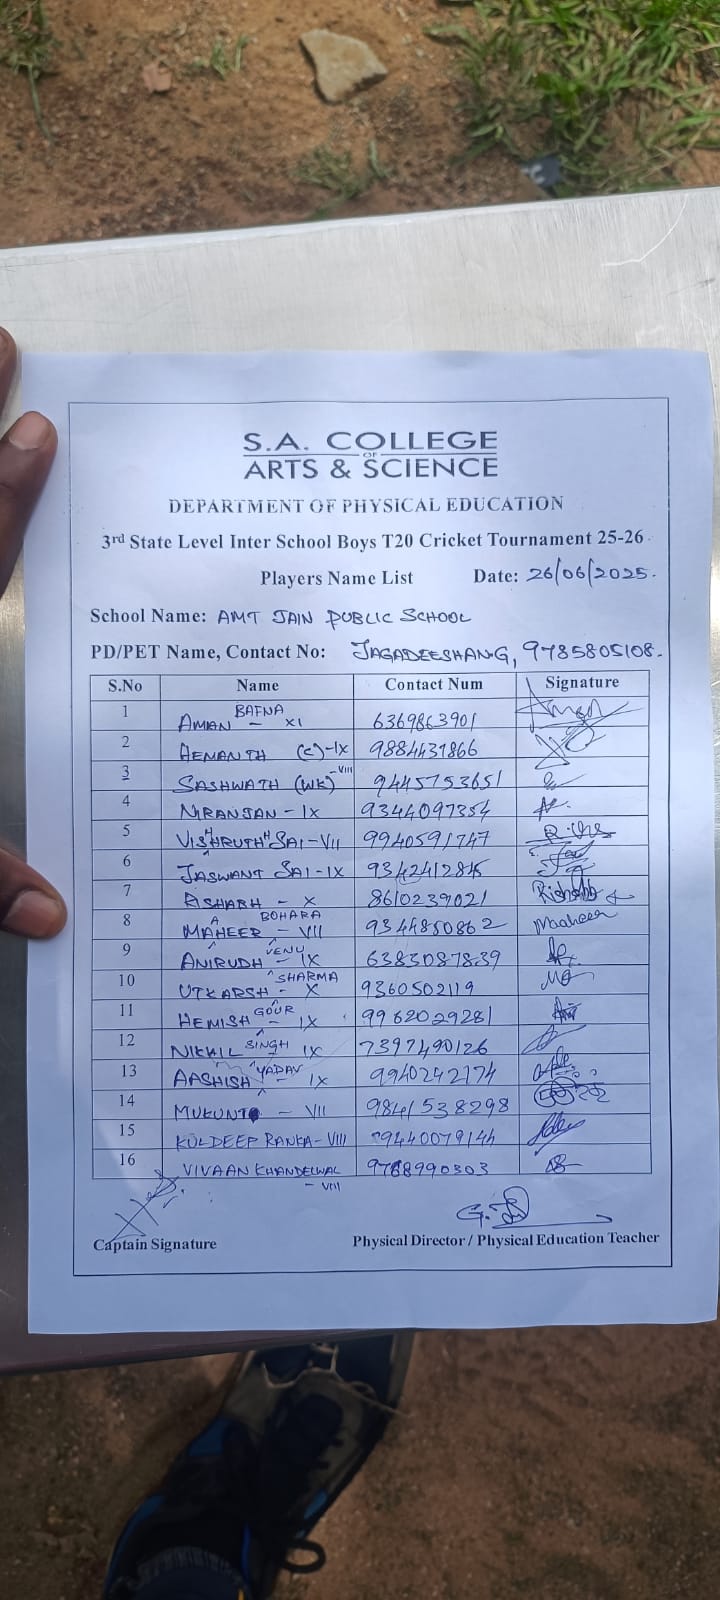 S.A. COLLEGE
OF
ARTS & SCIENCE
DEPARTMENT OF PHYSICAL EDUCATION
3rd State Level Inter School Boys T20 Cricket Tournament 25-26
Players Name List Date: 26/06/2025.
School Name: AMT JAIN PUBLIC SCHOOL
PD/PET Name, Contact No: JAGADEESHAN.G, 9785805108.
S.No Name Contact Num Signature
1 AMAN BAFNA - XI 6369863901 Aman
2 HEMANTH (C)-IX 9884431866
3 SASHWATH (WK) -VIII 9445753651
4 NIRANJAN - IX 9344097354
5 VISHRUTH SAI - VII 9940591747
6 JASWANT SAI - IX
7 RISHABH - X 8610239021 Rishabh
8 MAHEER BOHARA - VII 9344850862 Maaheer
9 ANIRUDH VENU - IX 6383087839
10 UTKARSH SHARMA - X 9360502119
11 HEMISH GOUR - IX 9962029281
12 NIKHIL SINGH IX 7397490126
13 AASHISH YADAV - IX 9940242174
14 - VII 9841538298
15 KULDEEP RANKA - VIII 9440079144
16 VIVAAN KHANDELWAL - VIII 9788990303
Captain Signature Physical Director / Physical Education Teacher